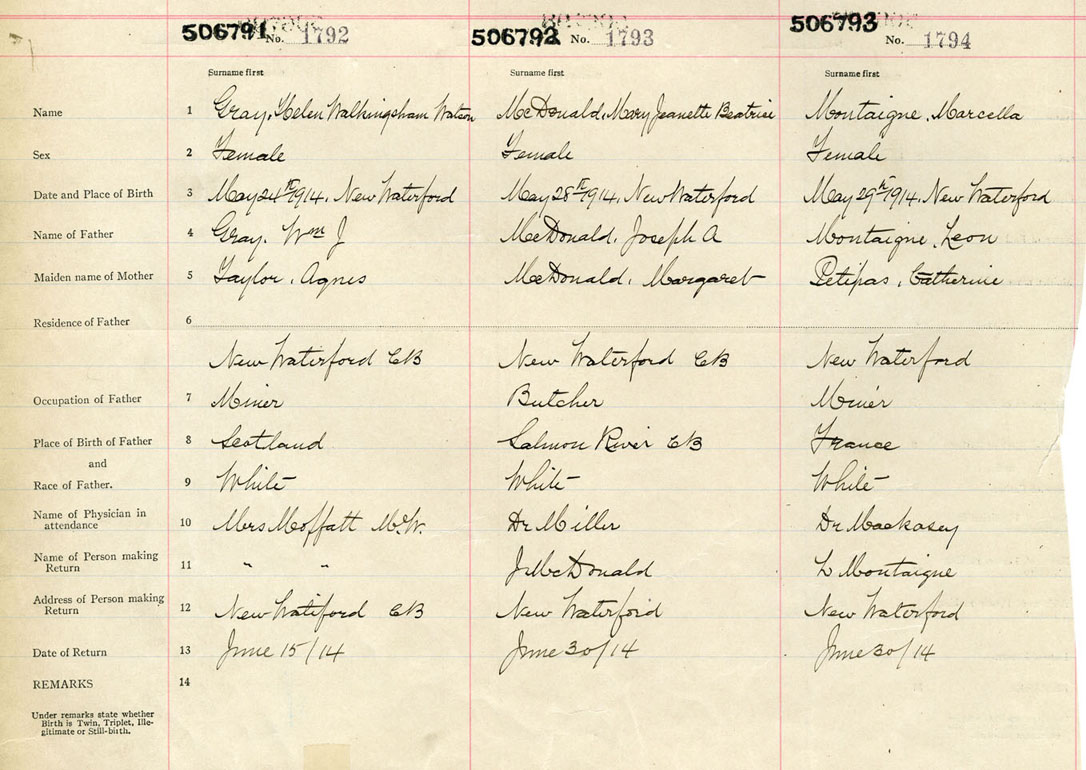 506791 No. 1792 506792 No. 1793 506793 No. 1794
Surname first Surname first Surname first
Name 1 Gray, Helen Walkingsham Watson McDonald, Mary Jeanette Beatrice Montaigne, Marcella
Sex 2 Female Female Female
Date and Place of Birth 3 May 24th 1914, New Waterford May 28th 1914, New Waterford May 29th 1914, New Waterford
Name of Father 4 Gray, Wm J McDonald, Joseph A Montaigne, Leon
Maiden name of Mother 5 Taylor, Agnes McDonald, Margaret Petipas, Catherine
Residence of Father 6
New Waterford CB New Waterford CB New Waterford
Occupation of Father 7 Miner Butcher Miner
Place of Birth of Father 8 Scotland Salmon River CB France
and
Race of Father. 9 White White White
Name of Physician in
attendance 10 Mrs Moffatt Dr Miller Dr Mackasey
Name of Person making
Return 11 " " J McDonald L Montaigne
Address of Person making
Return 12 New Waterford CB New Waterford New Waterford
Date of Return 13 June 15/14 June 30/14 June 30/14
REMARKS 14
Under remarks state whether
Birth is Twin, Triplet, Ille-
gitimate or Still-birth.